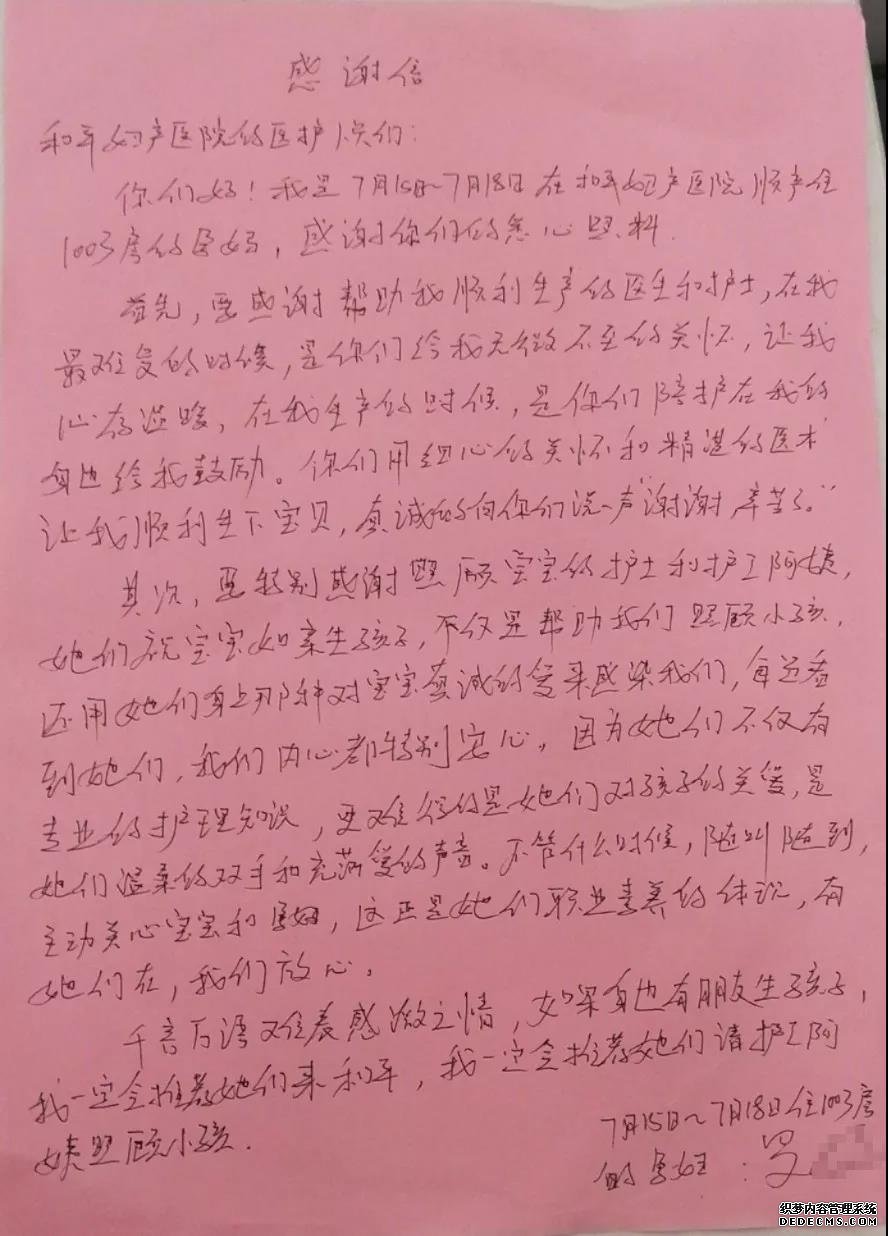 感谢信
和平妇产医院的医护人员们：
你们好！我是7月15日～7月18日在和平妇产医院顺产住
1003房的孕妈，感谢你们的悉心照料.
首先，要感谢帮助我顺利生产的医生和护士，在我
最难受的时候，是你们给我无微不至的关怀，让我
心存温暖，在我生产的时候，是你们陪护在我的
身边给我鼓励。你们用细心的关怀和精湛的医术
让我顺利生下宝贝，真诚的向你们说一声“谢谢，辛苦了。”
其次，要特别感谢照顾宝宝的护士和护工阿姨，
她们视宝宝如亲生孩子，不仅是帮助我们照顾小孩，
还用她们身上那种对宝宝真诚的爱来感染我们，每近看
到她们，我们内心都特别安心。因为她们不仅有
专业的护理知识，更难得的是她们对孩子的关爱，是
她们温柔的双手和充满爱的声音。不管什么时候，随叫随到，
主动关心宝宝和孕妇，这正是她们职业素养的体现，有
她们在，我们放心。
千言万语难表感激之情，如果身边有朋友生孩子，
我一定会推荐她们来和平，我一定会推荐她们请护工阿
姨照顾小孩.
7月15日～7月18日住1003房
的孕妇：罗
织梦内容管理系统
DEDECMS.COM